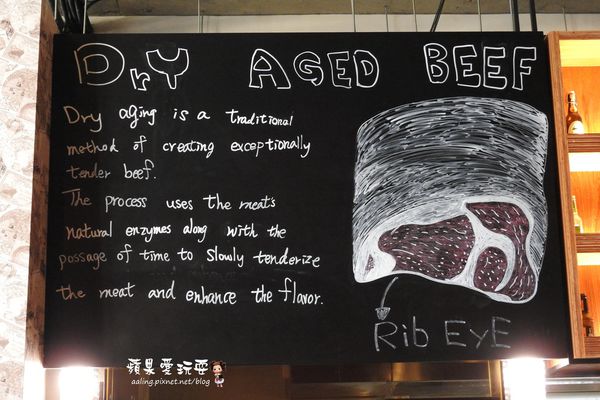 DrY AGED BEEF
Dry aging is a traditional
method of creating exceptionally
tender beef.
The process uses the meat's
natural enzymes along with the
passage of time to slowly tenderize
the meat and enhance the flavor.
Rib EyE
蘋果愛玩耍
aaling.pixnet.net/blog